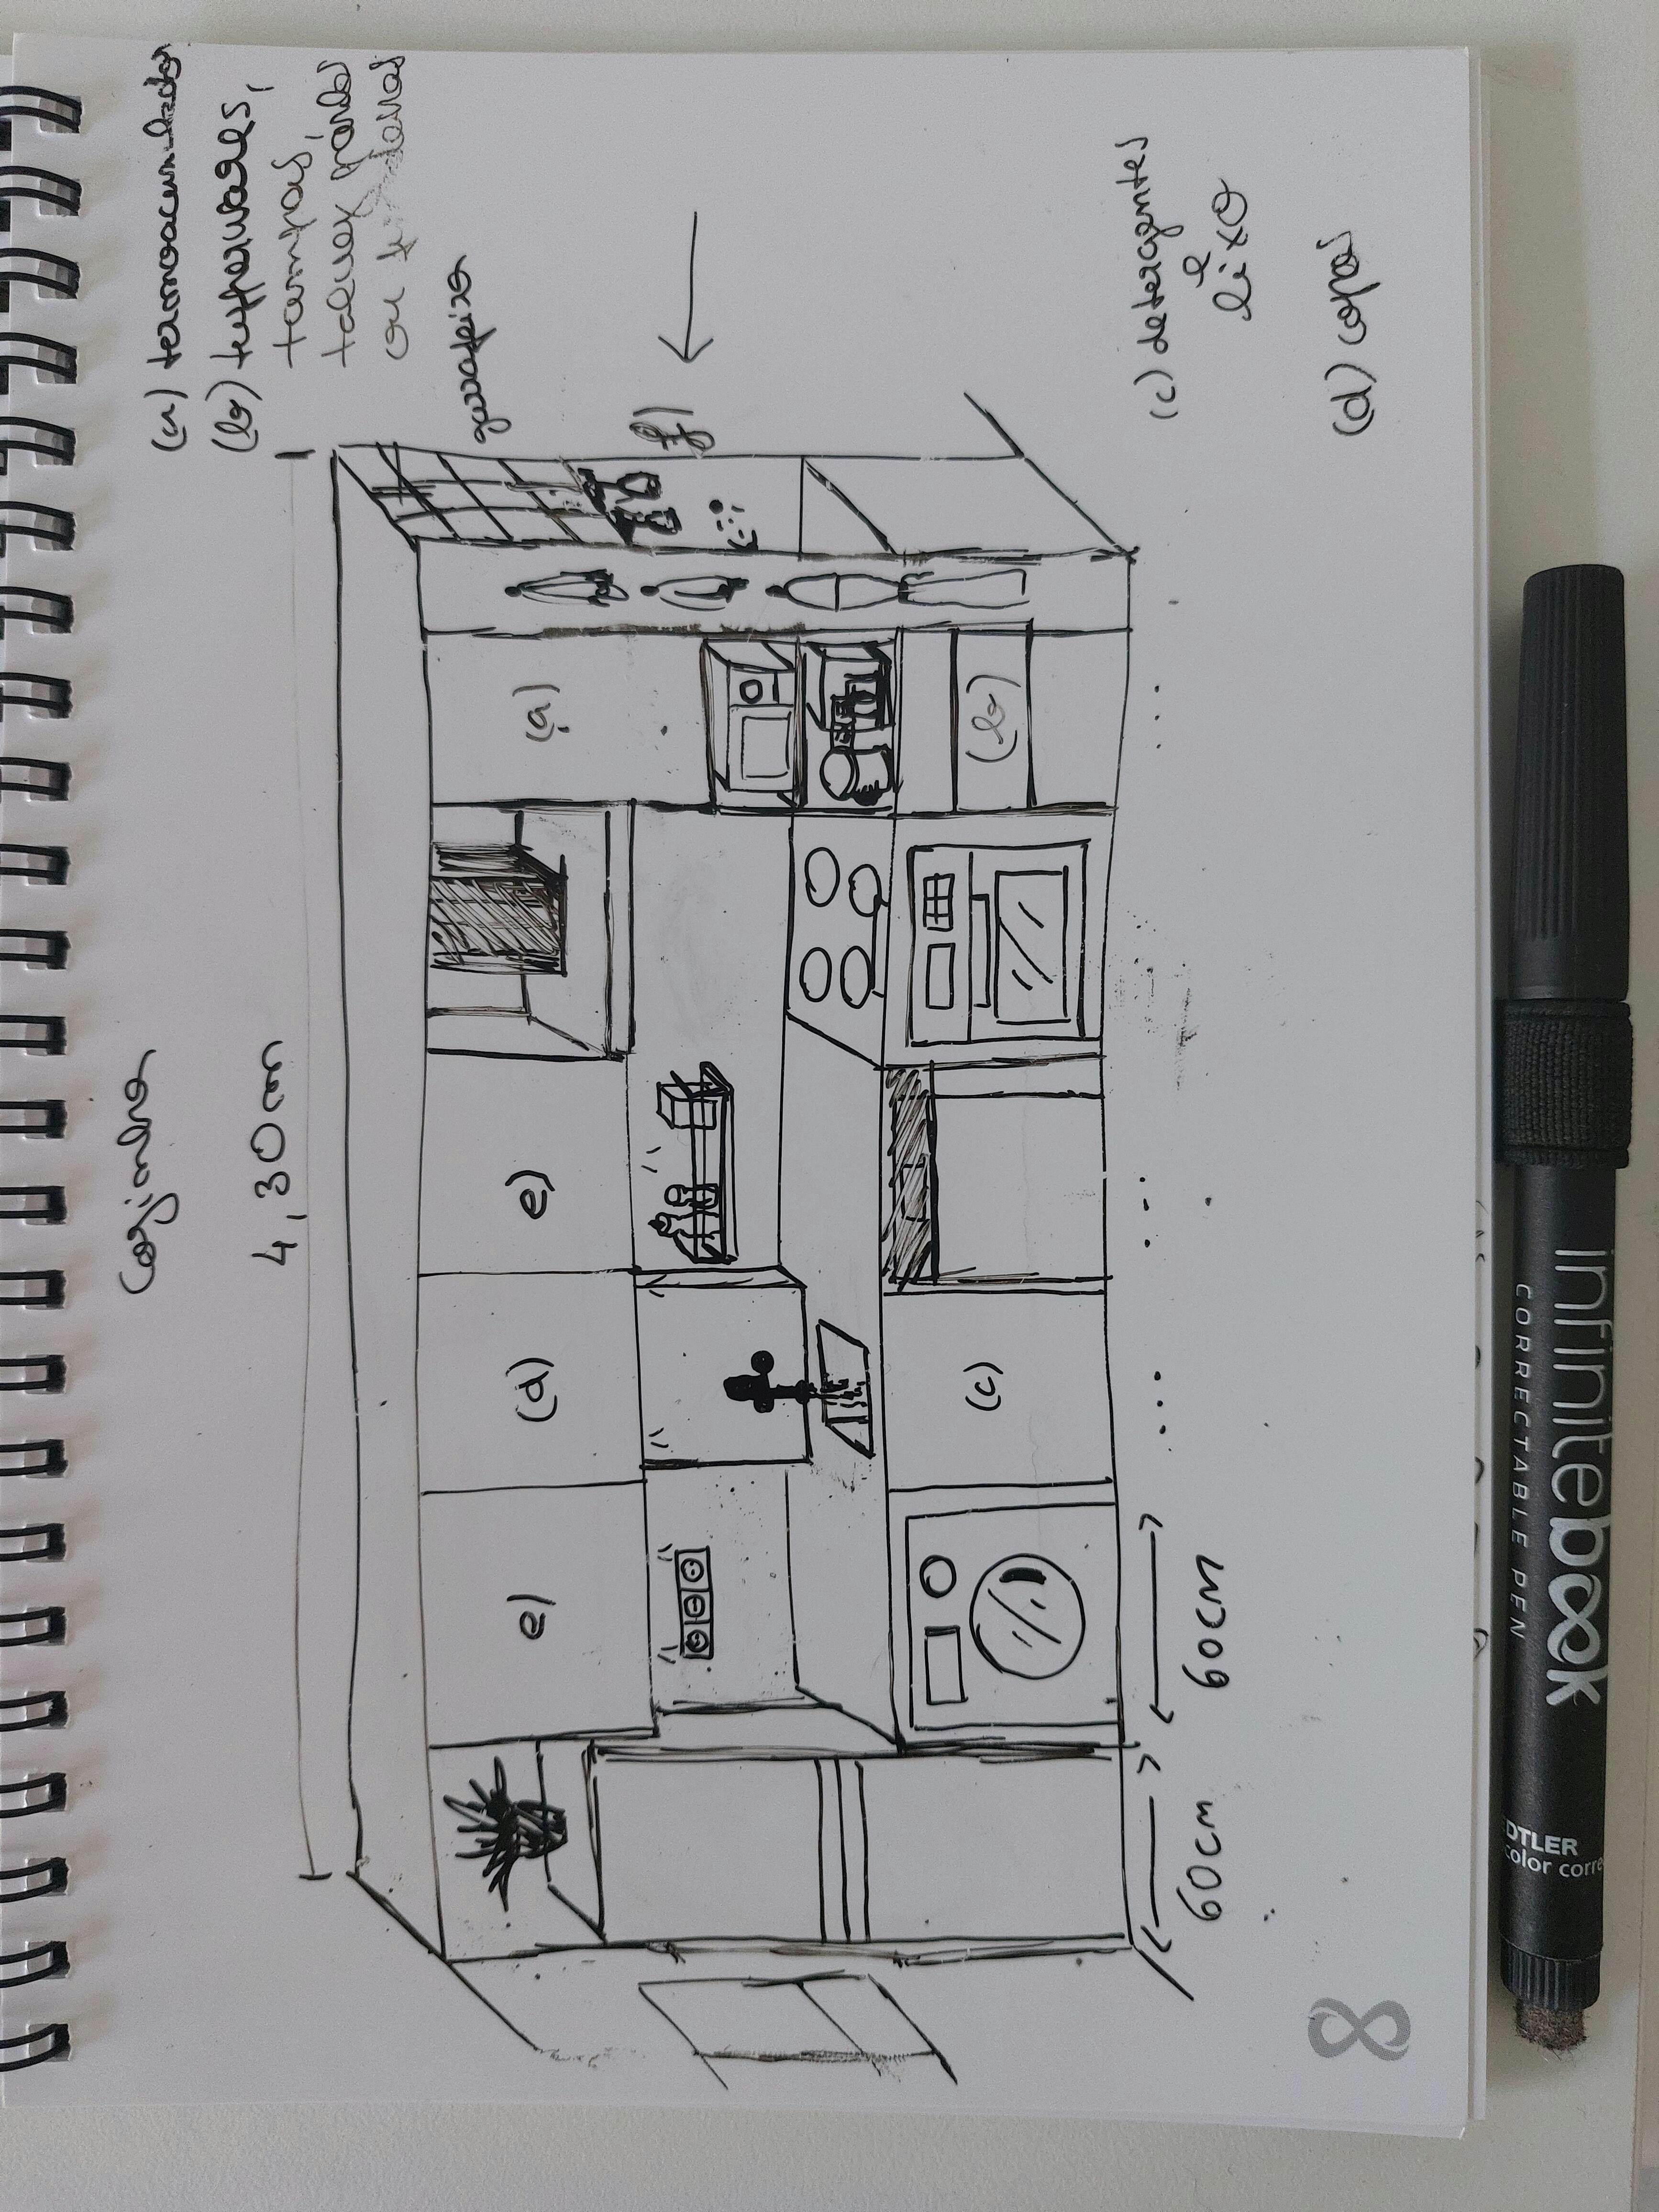 Cozinha
4,30m
(a) termoacumulador
(b) tupperwares,
tampas,
talvez
ou
garrafeira
(a)
e)
(d)
e)
f)
(b)
(c)
(c) detergentes
e
lixo
(d) copos
60cm
60cm
infinitebook
CORRECTABLE PEN
DTLER
color corre